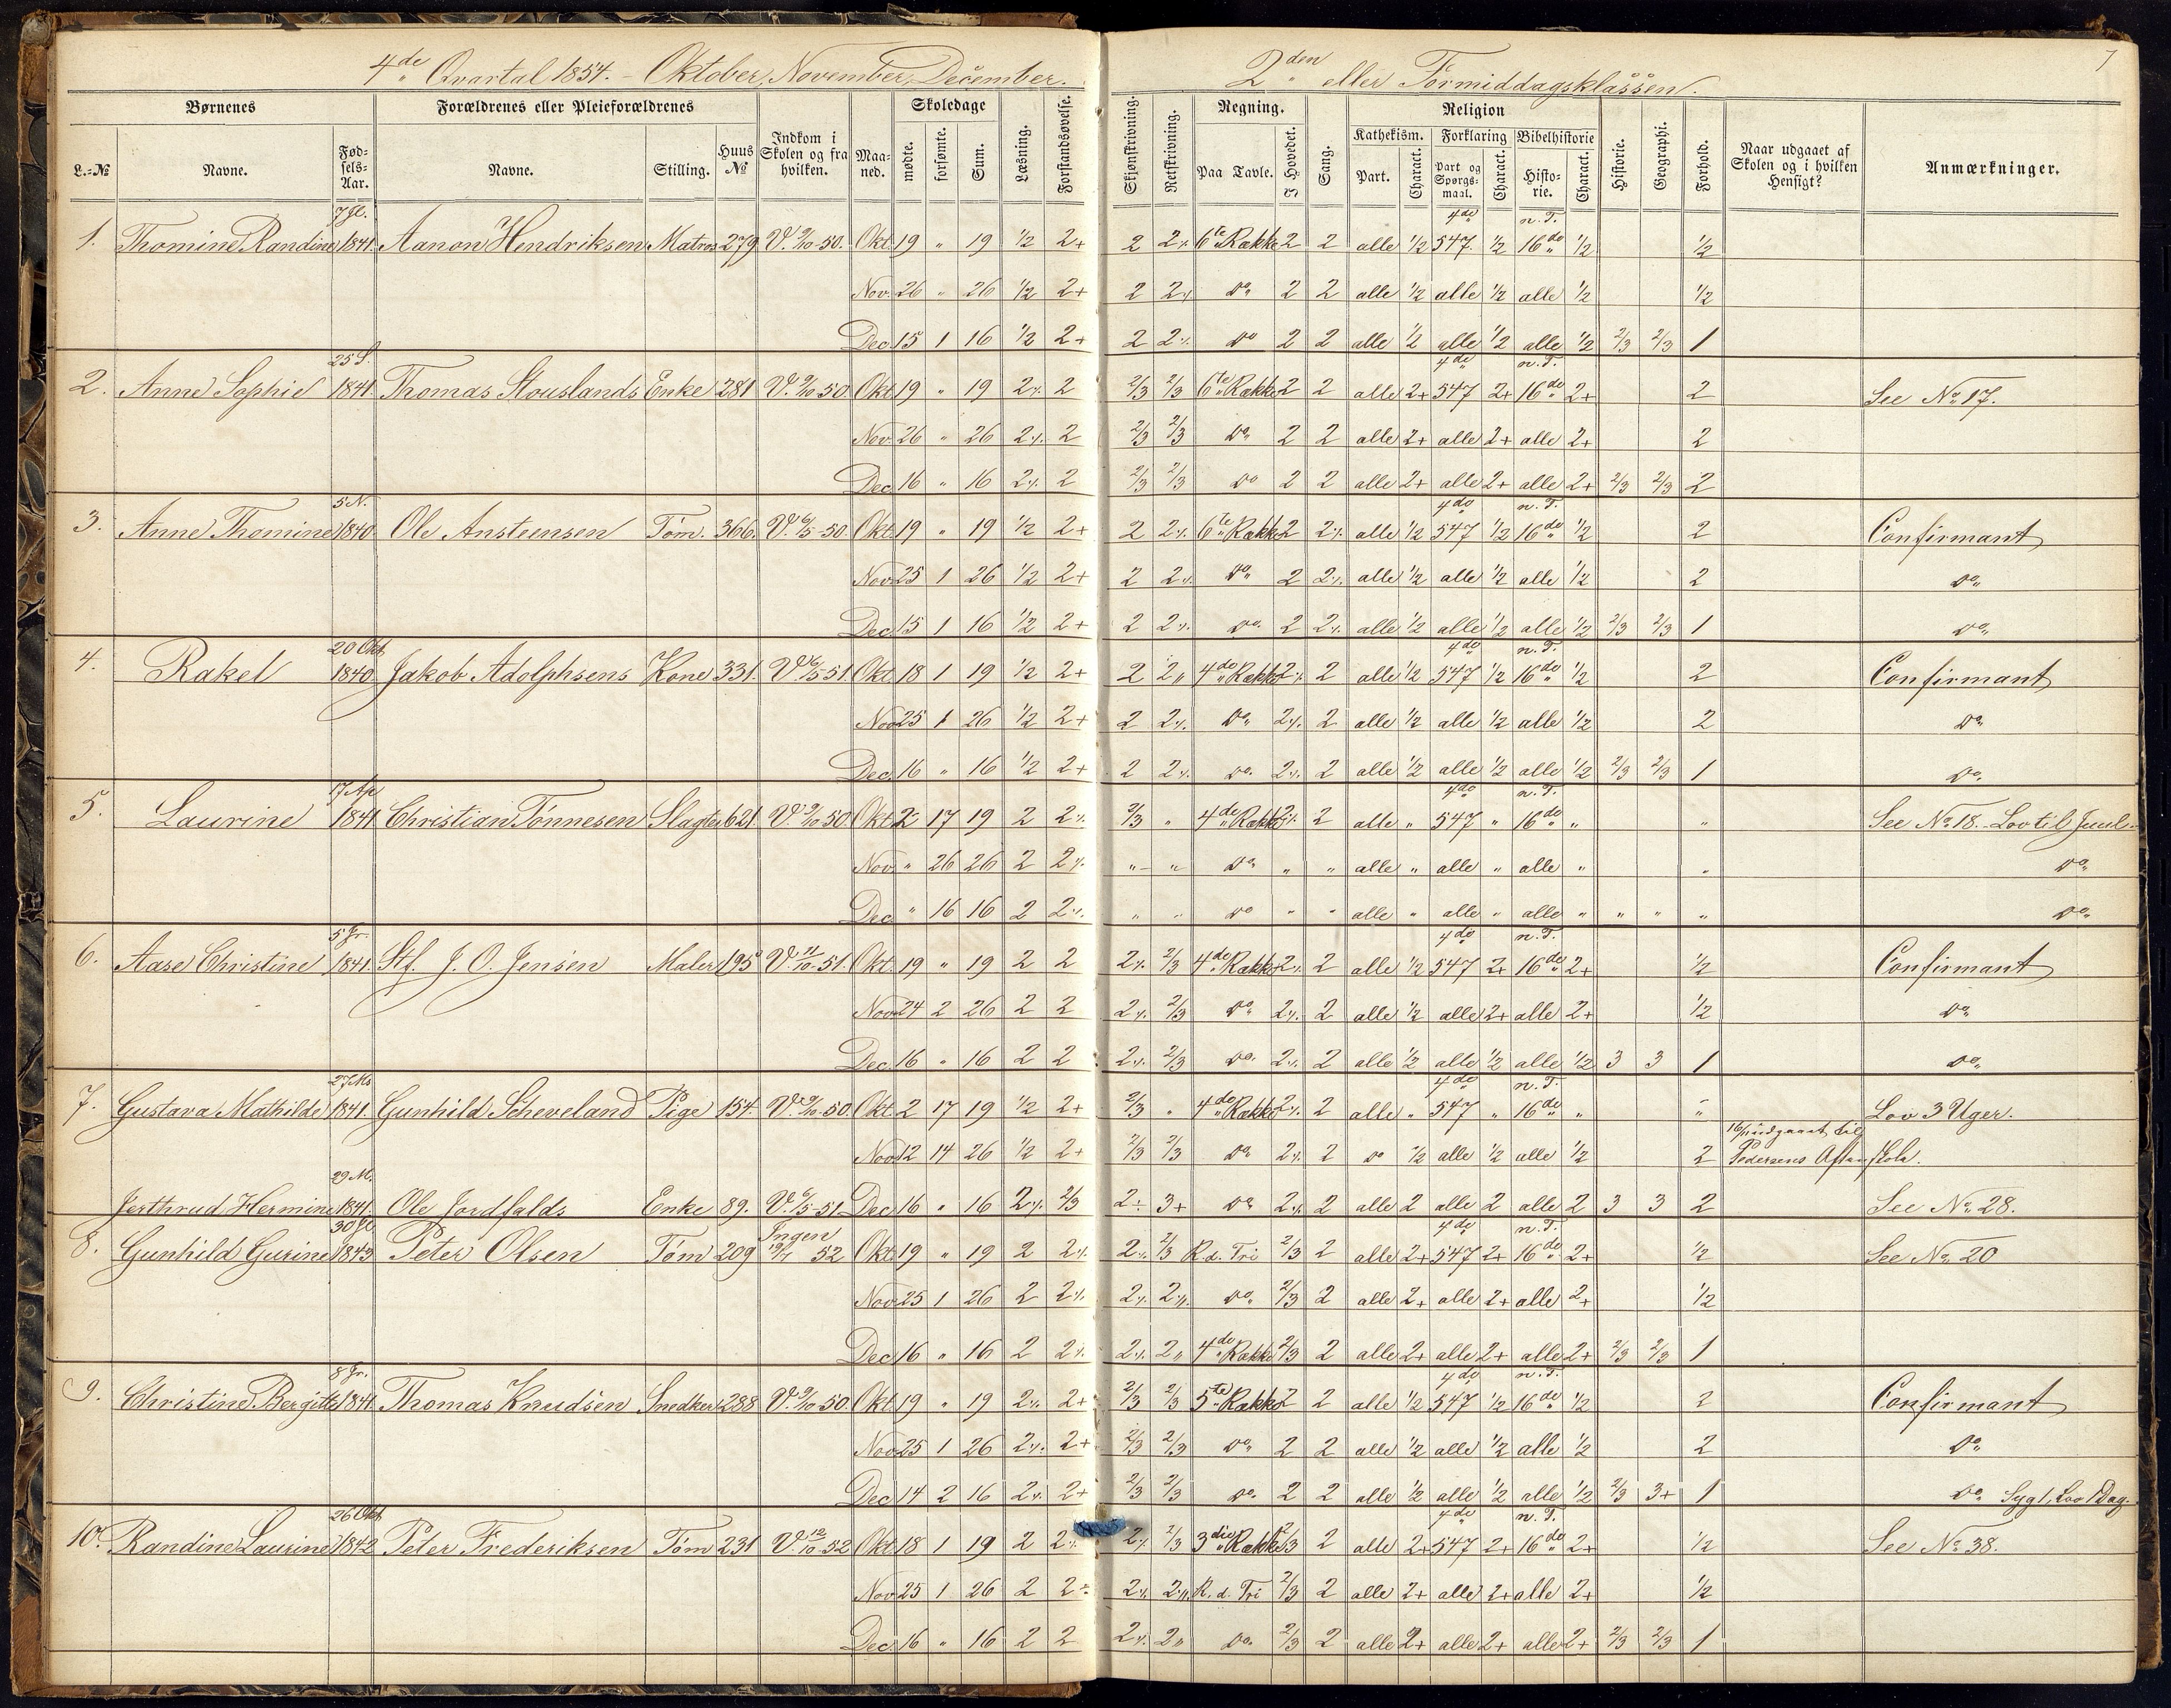 4de Qvartal 1854. – Oktober, November, December. 2den eller Formiddagsklassen. 7
Børnenes Forældrenes eller Pleieforældrenes Indkom i Skolen og fra hvilken. Maaned. Skoledage Læsning. Forstandsøvelse. Skjønskrivning. Retskrivning. Regning. Sang. Religion Historie. Geographi. Forhold. Naar udgaaet af Skolen og i hvilken Hensigt? Anmærkninger.
L.-№ Navne. Fødsels-Aar. Navne. Stilling. Huus № mødte. forsømte. Sum. Paa Tavle. I Hovedet. Kathekism. Forklaring Bibelhistorie
Part. Charact. Part og Spørgsmaal. Charact. Historie. Charact.
7 Jl. 4de n. T.
1. Thomine Randine 1841. Aanon Hendriksen Matros 279 V. 9/10-50. Okt. 19 " 19 1/2 2+ 2 2% 6te Række 2 2 alle 1/2 547. 1/2 16de 1/2 1/2
Nov. 26 " 26 1/2 2+ 2 2% do 2 2 alle 1/2 alle 1/2 alle 1/2 1/2
Dec. 15 1 16 1/2 2+ 2 2% do 2 2 alle 1/2 alle 1/2 alle 1/2 2/3 2/3 1
25 S. 4de n. T.
2. Anne Sophie 1841. Thomas Stouslands Enke 281 V. 9/10 50. Okt. 19 " 19 2% 2 2/3 2/3 6te Række 2 2 alle 2+ 547 2+ 16de 2+ 2 See No 17.
Nov. 26 " 26 2% 2 2/3 2/3 do 2 2 alle 2+ alle 2+ alle 2+ 2
Dec. 16 " 16 2% 2 2/3 2/3 do 2 2 alle 2+ alle 2+ alle 2+ 2/3 2/3 2
5 N. 4de n. T.
3. Anne Thomine 1840 Ole Ansteensen Tøm. 366. V. 6/5-50. Okt. 19 " 19 1/2 2+ 2 2% 6te Række 2 2% alle 1/2 547 1/2 16de 1/2 2 Confirmant
Nov. 25 1 26 1/2 2+ 2 2% do 2 2% alle 1/2 alle 1/2 alle 1/2 2 do
Dec. 15 1 16 1/2 2+ 2 2% do 2 2% alle 1/2 alle 1/2 alle 1/2 2/3 2/3 1 do
20 Okt. 4de n. T.
4. Rakel 1840 Jakob Adolphsens Kone 331. V. 6/5-51. Okt. 18 1 19 1/2 2+ 2 2" 4de Række 2% 2 alle 1/2 547 1/2 16de 1/2 2 Confirmant
Nov. 25 1 26 1/2 2+ 2 2% do 2% 2 alle 1/2 alle 1/2 alle 1/2 2 do
Dec. 16 " 16 1/2 2+ 2 2% do 2% 2 alle 1/2 alle 1/2 alle 1/2 2/3 2/3 1 do
17 Ap 4de n. T.
5. Laurine 1841 Christian Tönnesen Slagter 621. V. 9/10 50 Okt. 2 17 19 2 2% 2/3 " 4de Række 2% 2 alle " 547 " 16de " " See No 18. Lov til Juul.
Nov. " 26 26 2 2% " " do " " alle " alle " alle " " do
Dec. " 16 16 2 2% " " do " " alle " alle " alle " " " " do
5 Jr. 4de n. T.
6. Aase Christine 1841. Stf. J. O. Jensen Maler 195 V. 21/10-51. Okt. 19 " 19 2 2 2% 2/3 4de Række 2% 2 alle 1/2 547 2+ 16de 2+ 1/2 Confirmant
Nov. 24 2 26 2 2 2% 2/3 do 2% 2 alle 1/2 alle 2+ alle 2+ 1/2 do
Dec. 16 " 16 2 2 2% 2/3 do 2% 2 alle 1/2 alle 1/2 alle 1/2 3 3 1 do
27 Ms 4de n. T.
7. Gustava Mathilde 1841. Gunhild Scheveland Pige 154. V. 29/10-50. Okt. 2 17 19 1/2 2+ 2/3 " 4de Række 2% 2 alle " 547 " 16de " " Lov 3 Uger.
Nov. 12 14 26 1/2 2+ 2/3 2/3 do 2% 2 do 1/2 alle 1/2 alle 1/2 2 16/11 udgaaet til Pedersens Aftenskole.
29 M.
Jerthrud Hermine 1841. Ole Jordfalds Enke 89. V. 6/5-51 Dec. 16 " 16 2% 2/3 2÷ 3+ do 2% 2 alle 2 alle 2 alle 2 3 3 2 See No 28.
30 Jl Ingen 4de n. T.
8. Gunhild Gurine 1843 Peter Olsen Tøm 209 19/7 52 Okt. 19 " 19 2 2% 2% 2/3 R. d. Tri 2/3 2 alle 2+ 547 2+ 16de 2+ 1/2 See No 20
Nov. 25 1 26 2 2% 2% 2% do 2/3 2 alle 2+ alle 2+ alle 2+ 1/2
Dec. 16 " 16 2 2% 2% 2" 4de Række 2/3 2 alle 2+ alle 2+ alle 2+ 2/3 2/3 1
8 Jr. 4de n. T.
9. Christine Bergitte 1841 Thomas Knudsen Snedker 288 V. 9/10 50 Okt. 19 " 19 2% 2+ 2/3 2/3 5te Række 2 2 alle 1/2 547 1/2 16de 1/2 2 Confirmant
Nov. 25 1 26 2% 2+ 2/3 2/3 do 2 2 alle 1/2 alle 1/2 alle 1/2 2 do
Dec. 14 2 16 2% 2+ 2/3 2/3 do 2 2 alle 1/2 alle 1/2 alle 1/2 2/3 3+ 1 do Syg 1, Lov 1 Dag.
26 Okt. 4de n. T.
10. Randine Laurine 1842 Peter Frederiksen Tøm 231 V. 12/10-52 Okt. 18 1 19 2 2% 2% 2/3 3die Række 2/3 2 alle 2+ 547 2+ 16de 2+ 1/2 See No 38.
Nov. 25 1 26 2 2÷ 2% 2% R. d. Tri 2/3 2 alle 2+ alle 2+ alle 2+ 1/2
Dec. 16 " 16 2 2 2% 2" do 2/3 2 alle 2+ alle 2+ alle 2+ 2/3 2/3 1